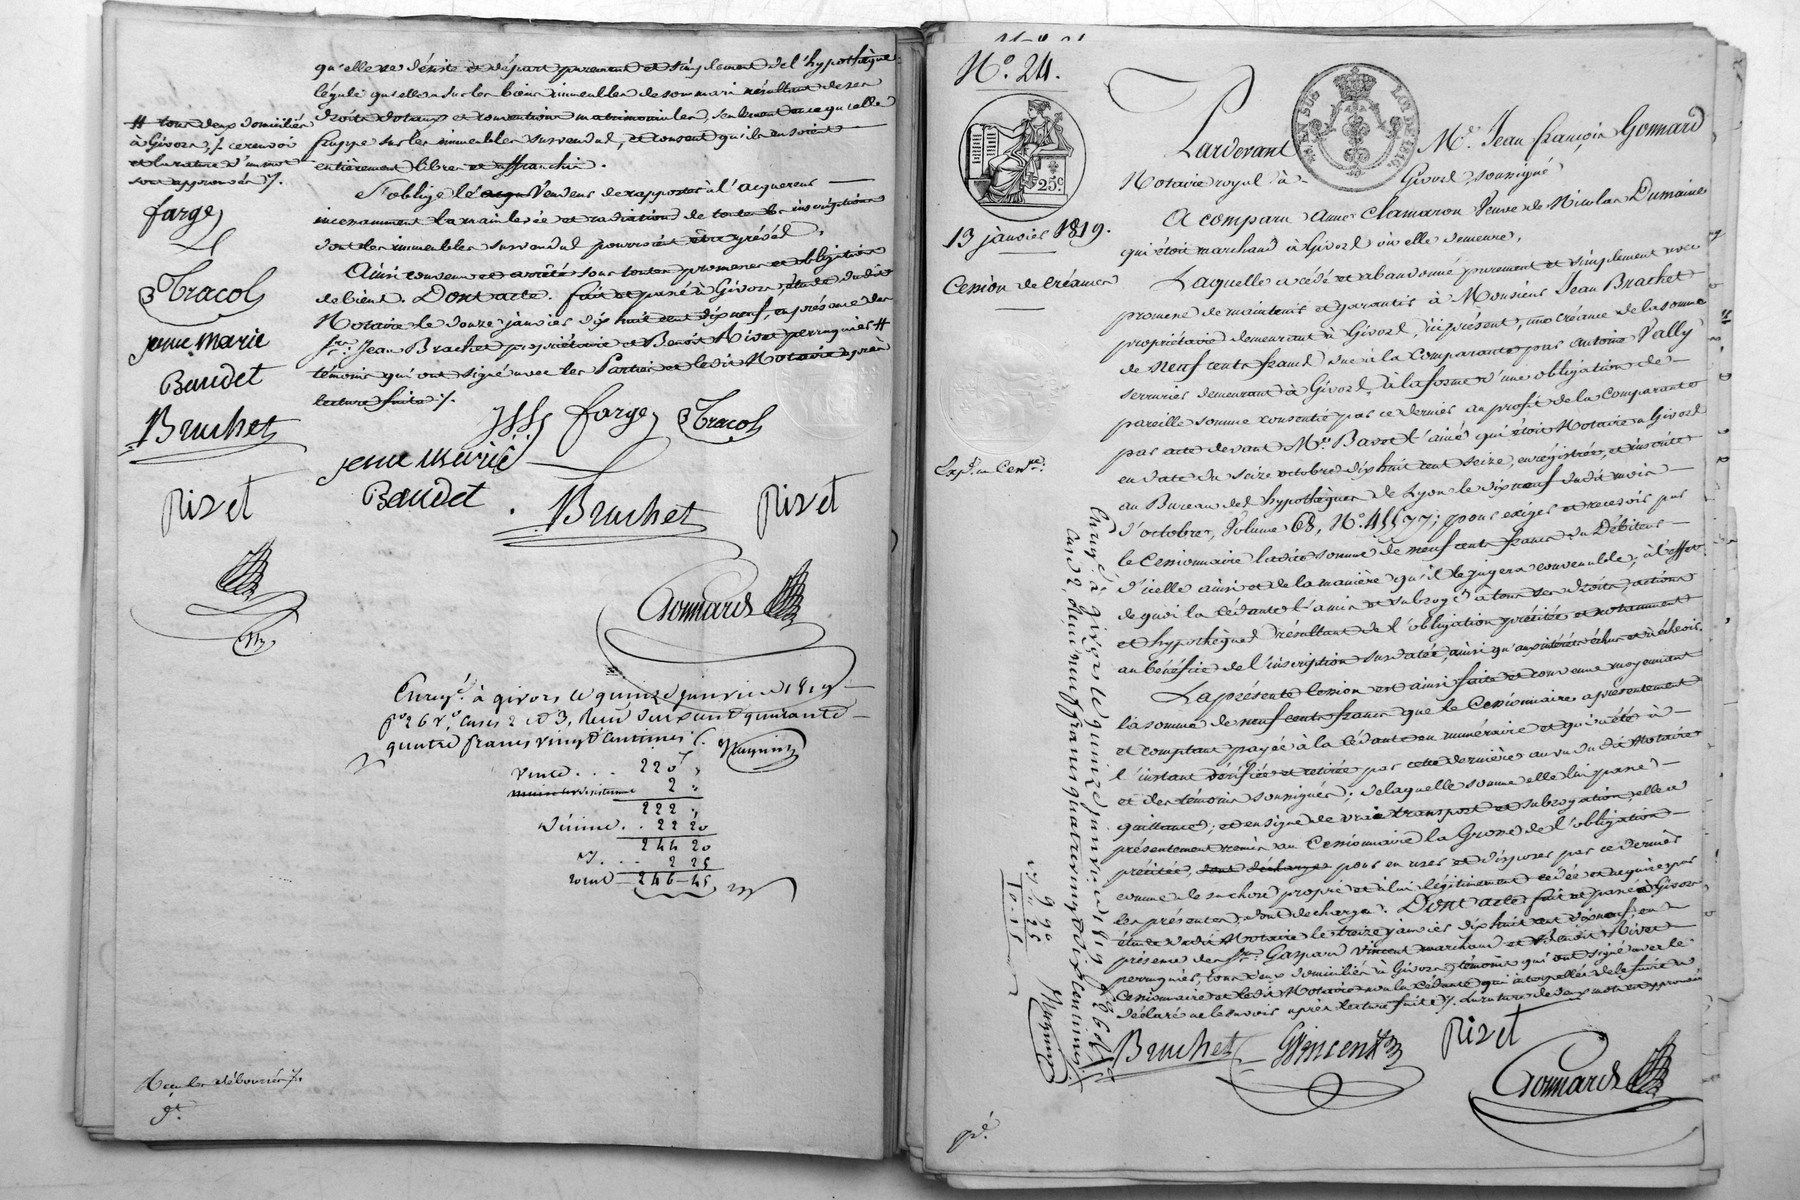 qu'elle se désiste et départ purement et simplement de l'hypothèque
légale qu'elle a sur les biens immeubles de son mari résultant de ses
droits dotaux et conventions matrimoniales, seulement en ce qu'elle
frappe sur les immeubles susvendus, et consent qu'ils en soient
entièrement libres et affranchis.
S'oblige le Vendeur de rapporter à l'acquéreur
incessamment la mainlevée et radiation de toutes les inscriptions
dont les immeubles susvendus pourroient être grévés.
Ainsi convenu et arrêté sous toutes promesses et obligation
de biens. Dont acte. fait et passé à Givors, étude dudit
Notaire le douze janvier dix huit cent dix neuf, en présence des
srs. Jean Brachet propriétaire et Benoît Rivet perruquier #
témoins qui ont signé avec les Parties et ledit Notaire après
lecture faite ./.
# tous deux domiciliés
à Givors, ./. ce renvoi
et la rature d'un mot
sont approuvés ./.
farge
Tracol
jenne marie
Baudet
Bruchet
Rivet
farge Tracol
jenne marie
Baudet . Bruchet Rivet
Gomard
Enregé. à givors le quinze janvier 1819
fo 26 vo. cases 2 et 3, Reçu deux cent quarante
quatre francs vingt centimes
vente .... 220
2 "
222 "
Décime .. 22 20
244 20
2 25
total 246-45
No. 24.
25c
13 janvier 1819.
Cession de Créances
LOI DE 1816.
Pardevant Me. Jean françois Gomard
Notaire royal à Givors, soussigné
A comparu Anne Clamaron Veuve de Nicolas Dumaine
qui étoit marchand à Givors où elle demeure,
Laquelle a cédé et abandonné purement et simplement avec
promesse de maintenir et garantir à Monsieur Jean Brachet
propriétaire demeurant à Givors, ici présent, une créance de la somme
de neuf cents francs due à la Comparante par Antoine Vally
serrurier demeurant à Givors, à la forme d'une obligation de
pareille somme consentie par ce dernier au profit de la Comparante
par acte devant Me. Bavot l'aîné qui étoit Notaire à Givors
en date du seize octobre dix huit cent seize, enregistrée, et inscrite
au Bureau des hypothèques de Lyon le dix neuf dudit mois
d'octobre, Volume 68, No. 45577; pour exiger et recevoir par
le Cessionnaire ladite somme de neuf cents francs du Débiteur
d'icelle ainsi et de la manière qu'il le jugera convenable, à l'effet
de quoi la cédante l'a mis et subrogé à tous ses droits, actions
et hypothèques résultant de l'obligation précitée et notamment
au bénéfice de l'inscription susdatée, ainsi qu'aux intérêts échus et à échoir.
La présente Cession est ainsi faite et convenue moyennant
la somme de neuf cents francs que le Cessionnaire a présentement
et comptant payée à la Cédante en numéraire et qui a été à
l'instant vérifiée et retirée par cette dernière au vu dudit Notaire
et des témoins soussignés; de laquelle somme elle lui passe
quittance; et en signe de vrai transport et subrogation, elle a
présentement remis au Cessionnaire la Grosse de l'obligation
précitée, dont décharge pour en user et disposer par ce dernier
comme de sa chose propre et à lui légitimement cédée et acquise par
les présentes, dont décharge. Dont acte fait et passé à Givors
étude dudit Notaire le treize janvier dix huit cent dix neuf; en
présence des srs. Gaspard Vincent marchand et Benoît Rivet
perruquier, tous deux domiciliés à Givors, témoins qui ont signé avec le
Cessionnaire et ledit Notaire non la Cédante qui interpellée de le faire a
déclaré ne le savoir après lecture faite ./. La rature de deux mots est approuvée
Bruchet Vincent Rivet
Gomard
Enregé. à givors le quinze janvier 1819 fo 26 vo
Case 2, Reçu neuf francs quatre vingt dix centimes
9 90
10-15